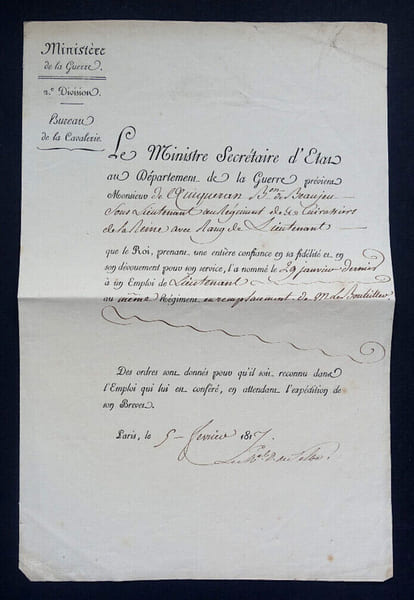 Ministère
de la Guerre.
2.e Division.
Bureau
de la Cavalerie.
Le Ministre Secrétaire d'Etat
au Département de la Guerre prévient
Monsieur de Quiqueran B.on de Beaujeu
Sous Lieutenant au Régiment de Cuirassiers
de la Reine avec Rang de Lieutenant
que le Roi, prenant une entière confiance en sa fidélité et en
son dévouement pour son service, l'a nommé le 29 janvier dernier
à un Emploi de Lieutenant
au même Régiment en remplacement de M. Le Bouteiller
Des ordres sont donnés pour qu'il soit reconnu dans
l'Emploi qui lui est conféré, en attendant l'expédition de
son Brevet.
Paris, le 5 février 1817.